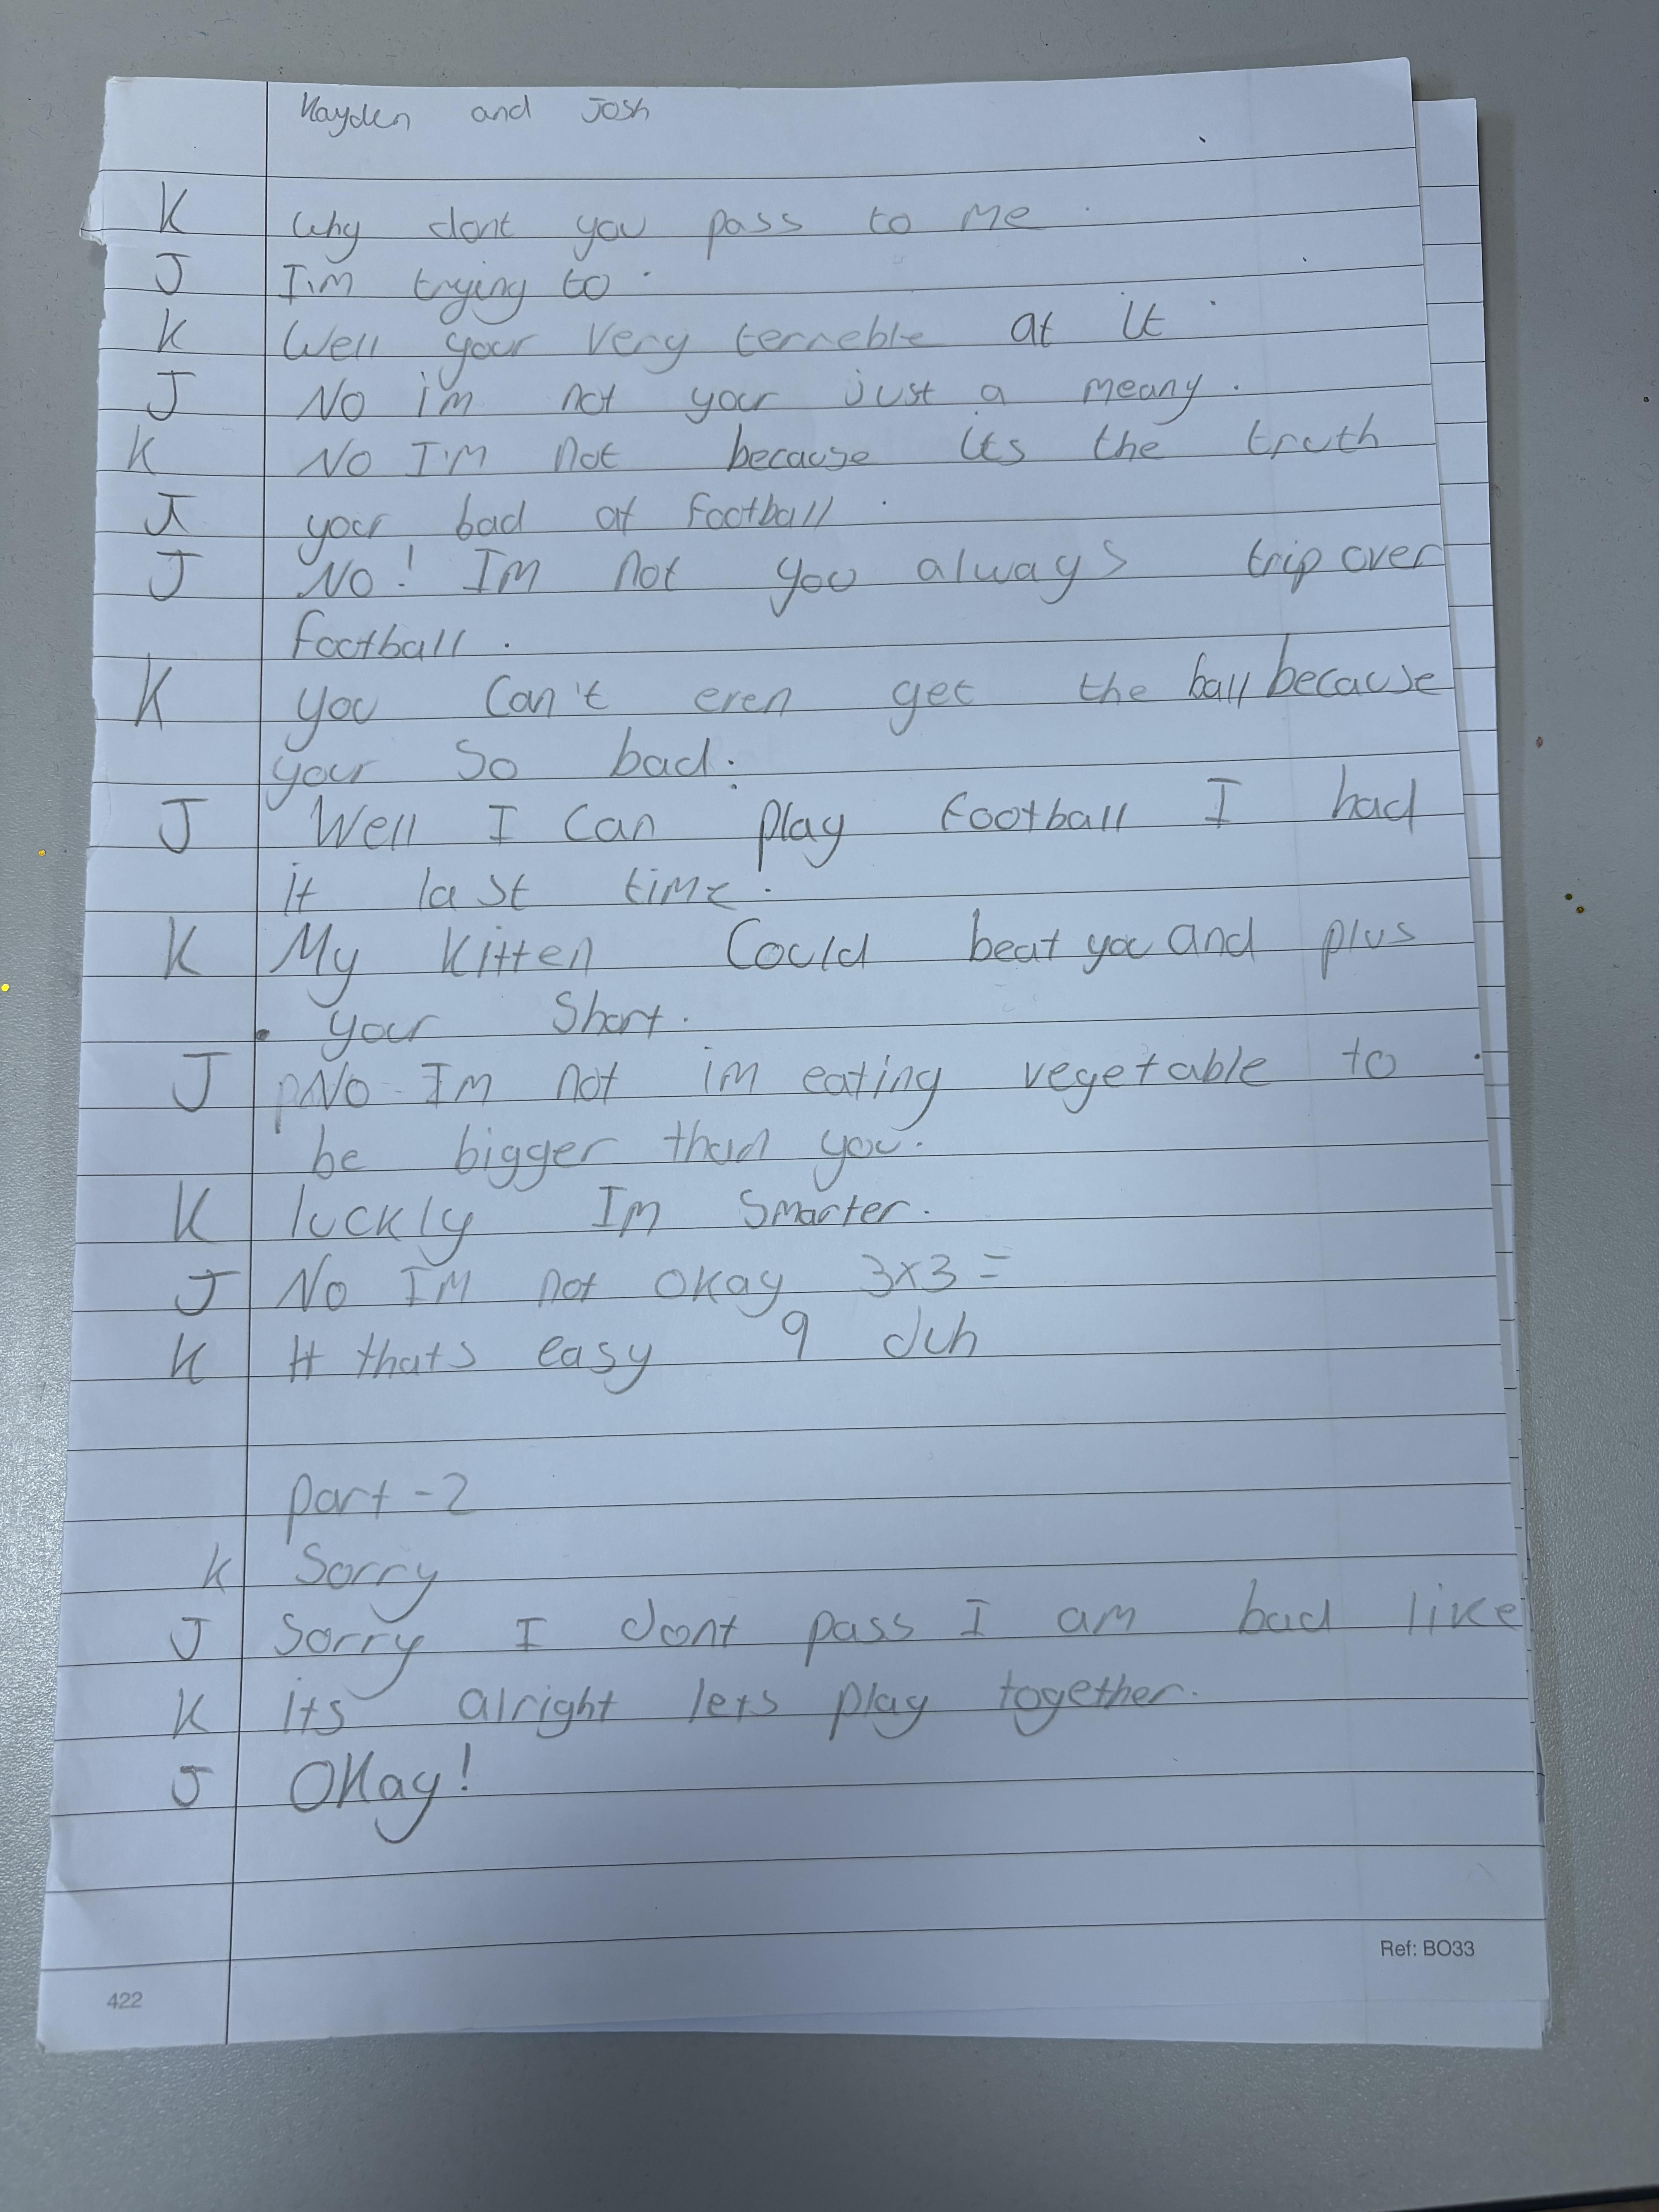 Kayden and Josh
K Why dont you pass to me.
J I'm trying to.
K Well your very terreble at it.
J No i'm not your just a meany.
K No I'm not because its the truth
J your bad at football.
J No! Im not you always trip over
football.
K you can't even get the ball because
your so bad.
J Well I can play football I had
it last time.
K My kitten could beat you and plus
your short.
J No Im not im eating vegetable to
be bigger than you.
K luckly Im smarter.
J No IM not okay 3x3=
K thats easy 9 duh
part-2
K Sorry
J Sorry I dont pass I am bad like
K its alright lets play together.
J Okay!
Ref: BO33
422